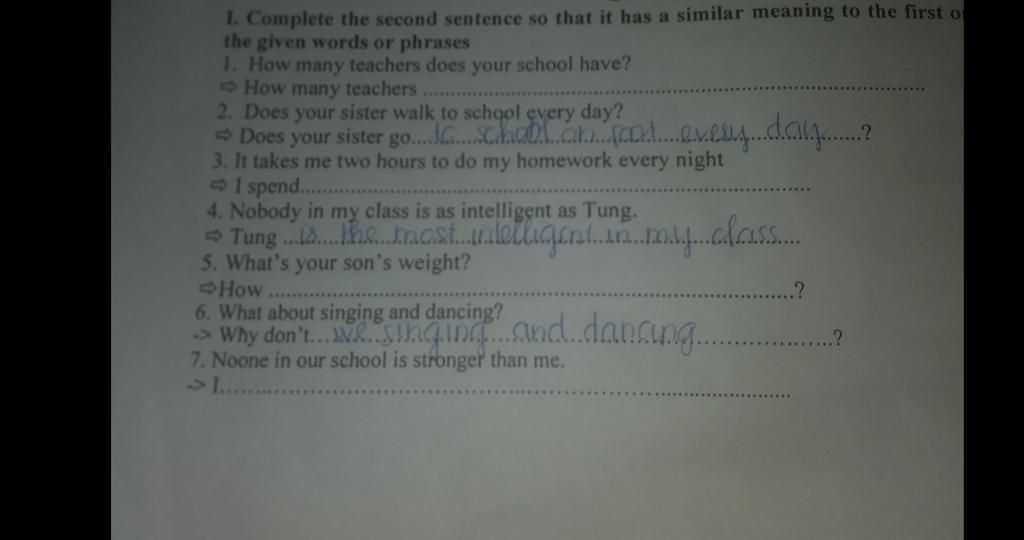 I. Complete the second sentence so that it has a similar meaning to the first
the given words or phrases
1. How many teachers does your school have?
⇨ How many teachers ....................................................................
2. Does your sister walk to school every day?
⇨ Does your sister go...to school on foot every day......?
3. It takes me two hours to do my homework every night
⇨ I spend....................................................................
4. Nobody in my class is as intelligent as Tung.
⇨ Tung ...is the most intelligent in my class....
5. What's your son's weight?
⇨How ....................................................................?
6. What about singing and dancing?
-> Why don't...we singing and dancing.....................?
7. Noone in our school is stronger than me.
-> I....................................................................